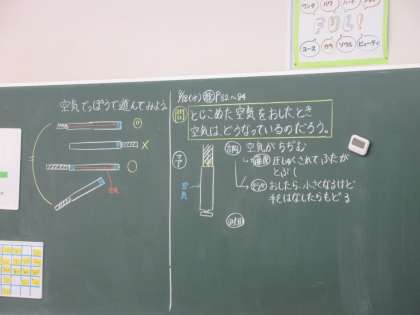 空気でっぽうで遊んでみよう
◎
×
○
空気
9/18(水) P82~84
問
とじこめた空気をおしたとき
空気は、どうなっているのだろう。
空気
空気がちぢむ
圧しゅくされてふたが
とぶ!
おしたら、小さくなるけど
手をはなしたらもどる
パワー
ハート
ユース
カラ
ソウル
ビューティ